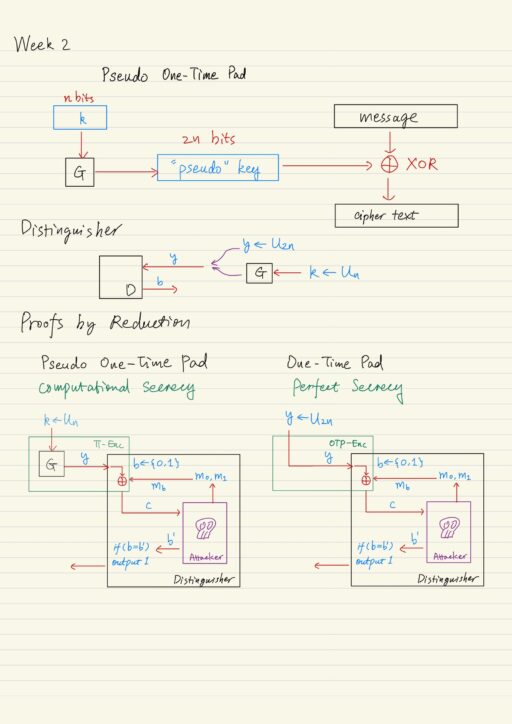 Week 2
Pseudo One-Time Pad
n bits
k
G
2n bits
"pseudo" key
message
⊕ XOR
cipher text
Distinguisher
y ← U2n
y
D
b
G
k ← Un
Proofs by Reduction
Pseudo One-Time Pad
Computational Secrecy
k ← Un
Π-Enc
G
y
b ← {0,1}
⊕
mb
m0, m1
c
Attacker
b'
if (b=b')
output 1
Distinguisher
One-Time Pad
Perfect Secrecy
y ← U2n
OTP-Enc
y
b ← {0,1}
⊕
mb
m0, m1
c
Attacker
b'
if (b=b')
output 1
Distinguisher